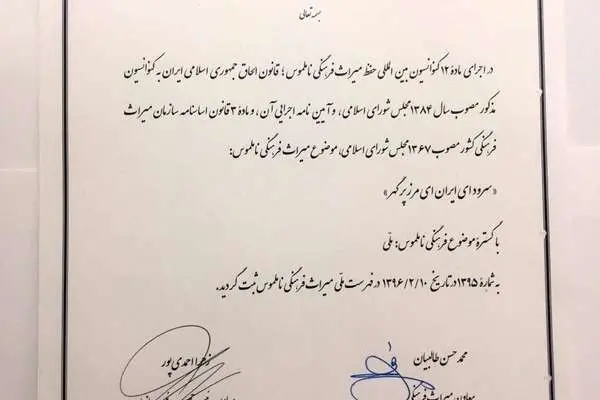 بسمه تعالی
در اجرای مادهٔ ۱۲ کنوانسیون بین المللی حفظ میراث فرهنگی ناملموس؛ قانون الحاق جمهوری اسلامی ایران به کنوانسیون
مذکور مصوب سال ۱۳۸۴ مجلس شورای اسلامی، و آیین نامه اجرایی آن، و مادهٔ ۳ قانون اساسنامه سازمان میراث
فرهنگی کشور مصوب ۱۳۶۷ مجلس شورای اسلامی، موضوع میراث فرهنگی ناملموس:
«سرود ای ایران ای مرز پرگهر»
با گسترهٔ موضوع فرهنگی ناملموس: ملّی
به شمارهٔ ۱۳۹۵ در تاریخ ۱۳۹۶/۲/۱۰ در فهرست ملّی میراث فرهنگی ناملموس ثبت گردید.
محمد حسن طالبیان
زهرا احمدی پور
معاون میراث فرهنگی